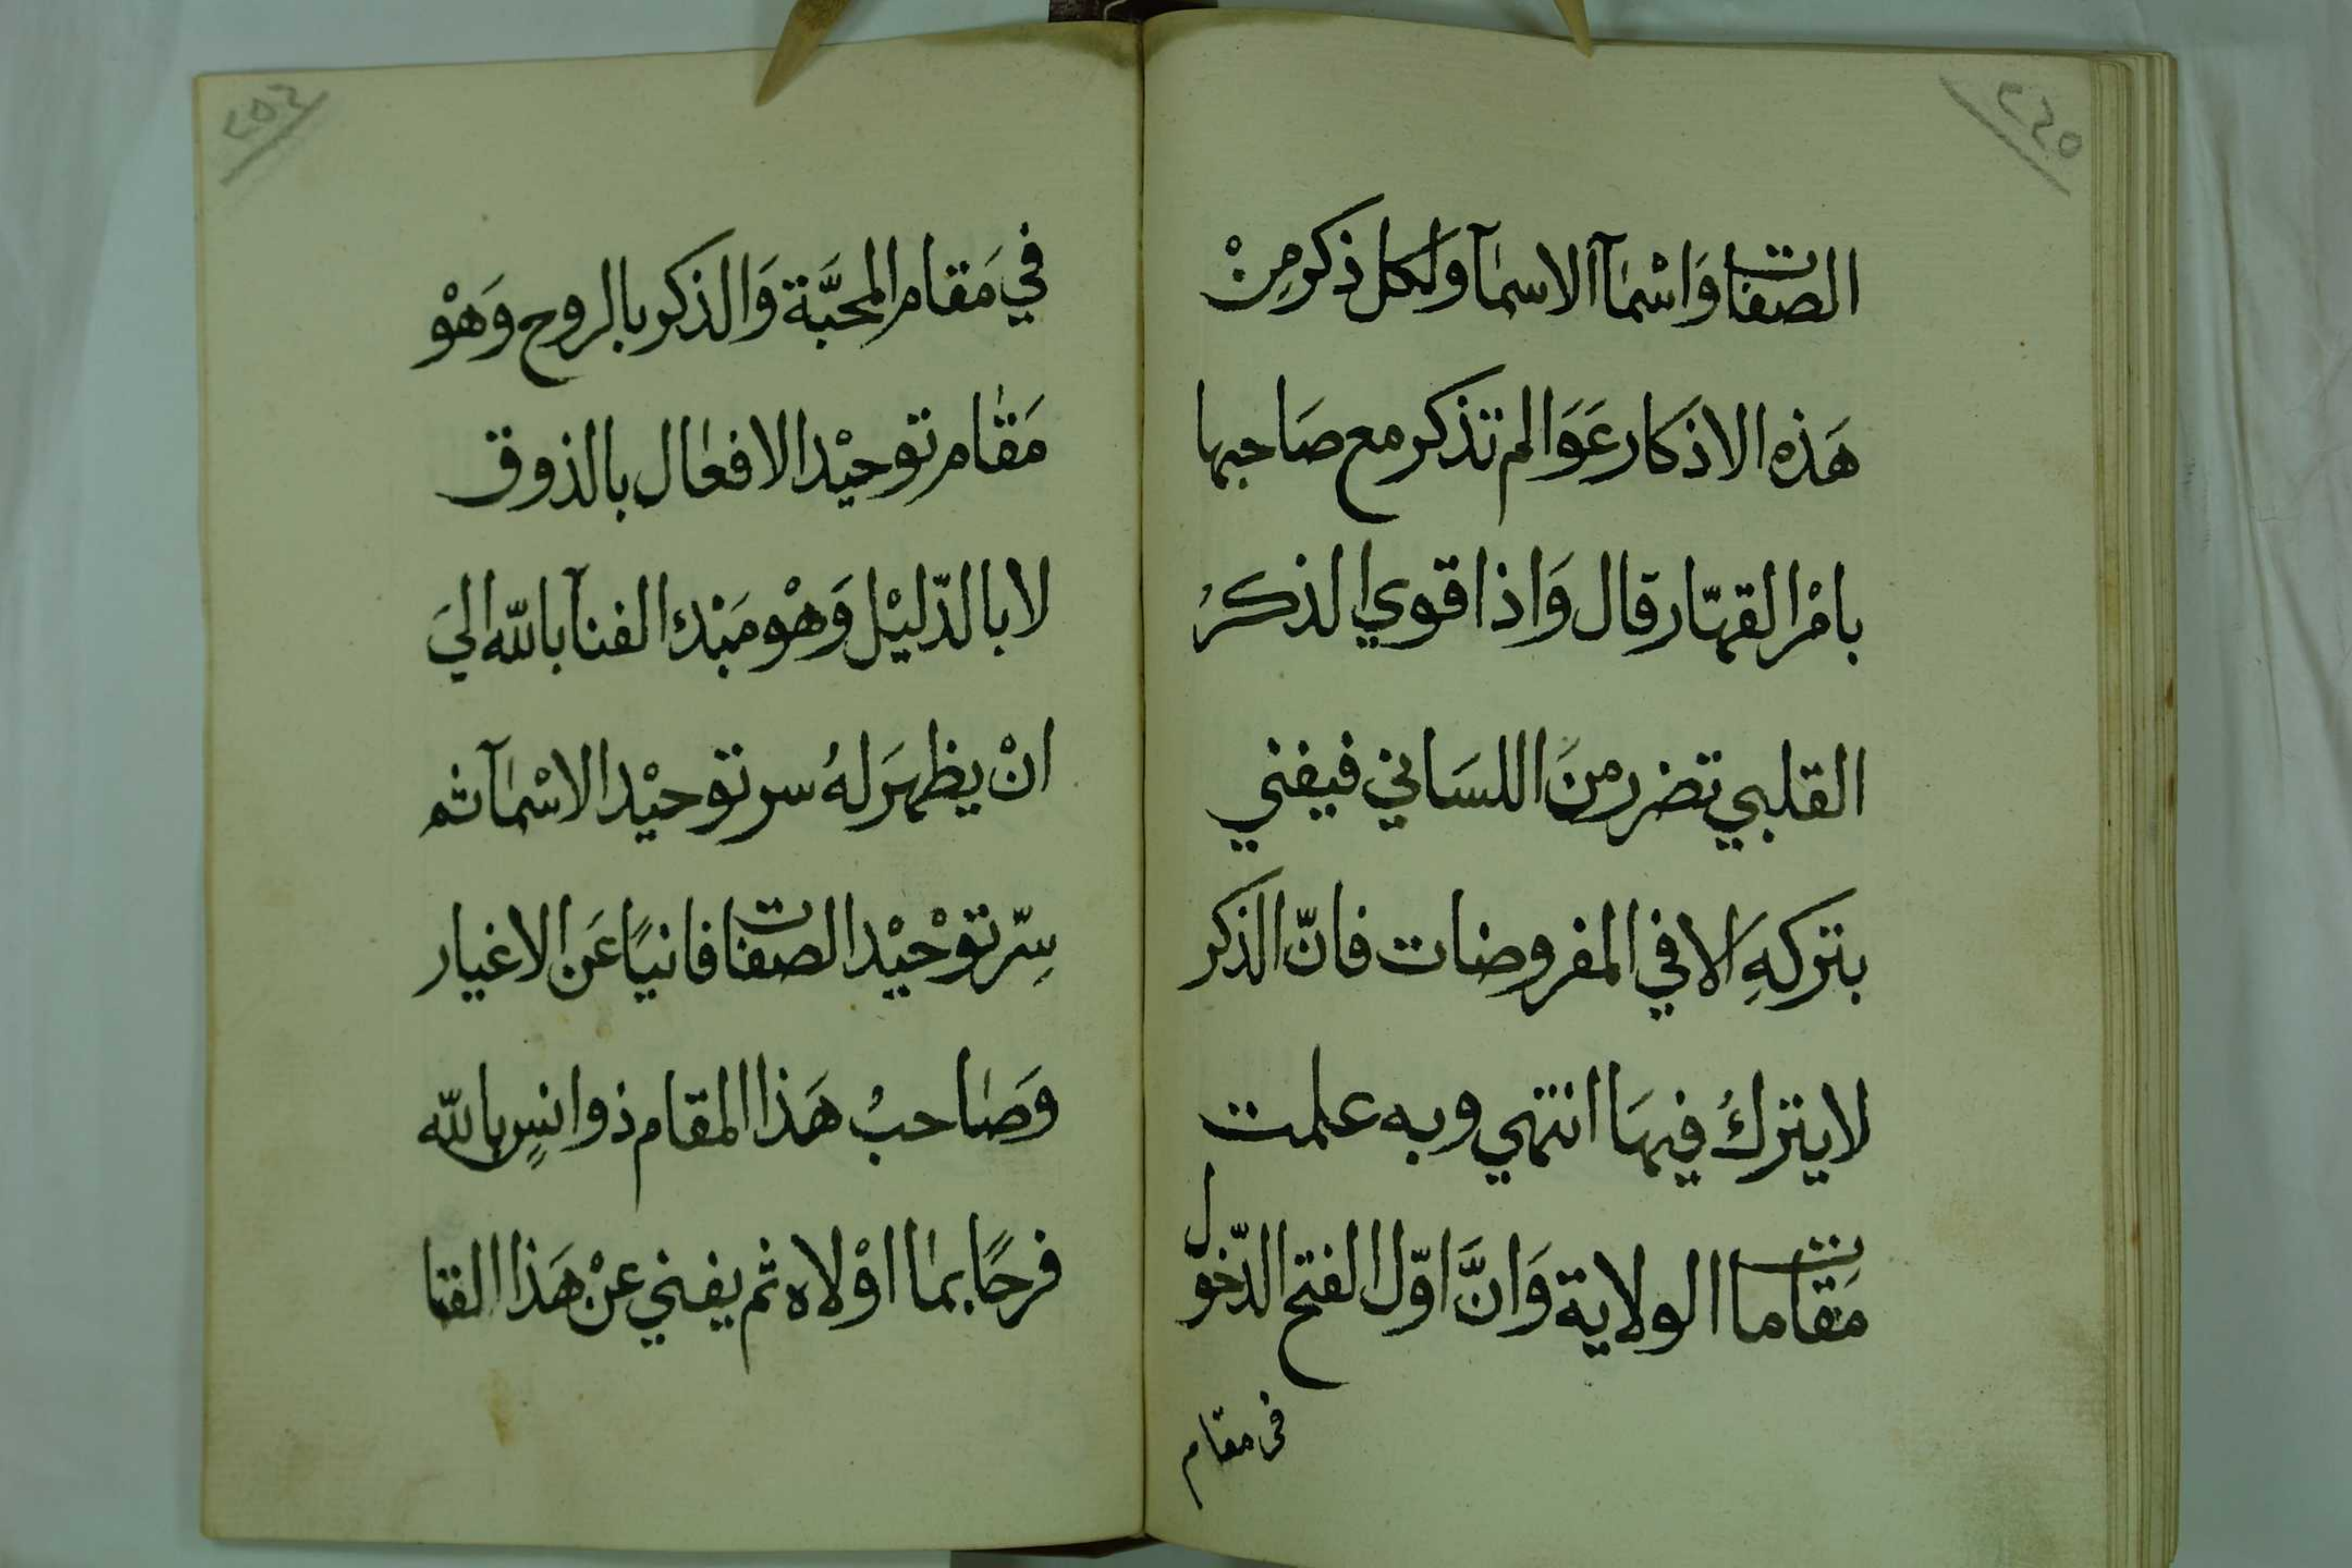 الصفات وَاسْمآ الاسمآ ولكل ذكر مِنْ
هَذه الاذكار عَوَالم تذكر مع صَاحبها
بامْر القهّار قال وَاذا قوي الذكرُ
القلبي تضرر منَ اللسَاني فيفني
بتركهِ الا في المفروضات فانّ الذكر
لا يتركُ فيهَا انتهي وبه علمت
مَقامات الولاية وَانَّ اوّل الفتح الدّخول
في مقام
في مَقام المحبَّة وَالذكر بالروح وَهْو
مَقام توحيْد الافعال بالذوق
لا بالدّليْل وَهْو مَبْدك الفنآ بالله اليَ
انْ يظهرَ لهُ سر توحيْد الاسْمآ ثم
سِرّ توْحيْد الصفات فانيًا عَن الاغيار
وَصَاحبُ هَذا المقام ذو انسٍ بالله
فرحًا بما اوْلاه ثم يفني عنْ هَذا الفنا